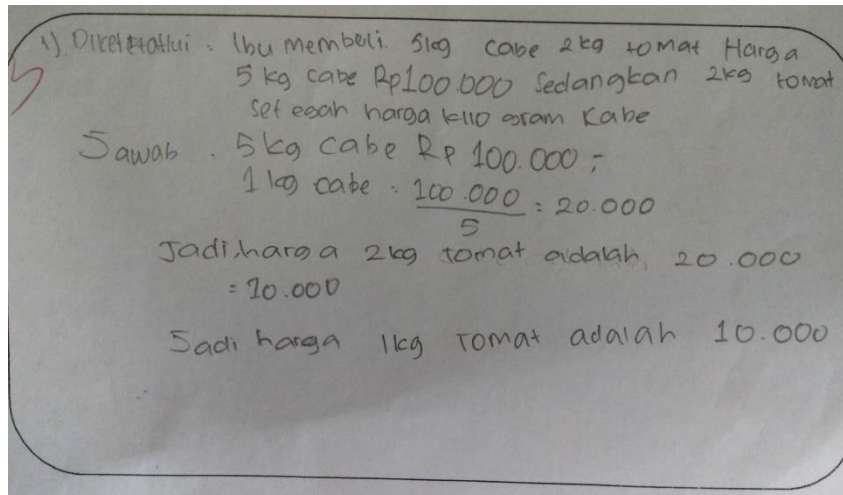 1). Diketetahui : Ibu membeli. 5kg cabe 2kg tomat Harga
5 kg cabe Rp100.000 Sedangkan 2kg tomat
set egah harga kilo gram Kabe
Jawab . 5kg cabe Rp 100.000 ;-
1 kg cabe : 100.000 / 5 = 20.000
Jadi, harga 2kg tomat adalah, 20.000
= 10.000
Jadi harga 1kg Tomat adalah 10.000